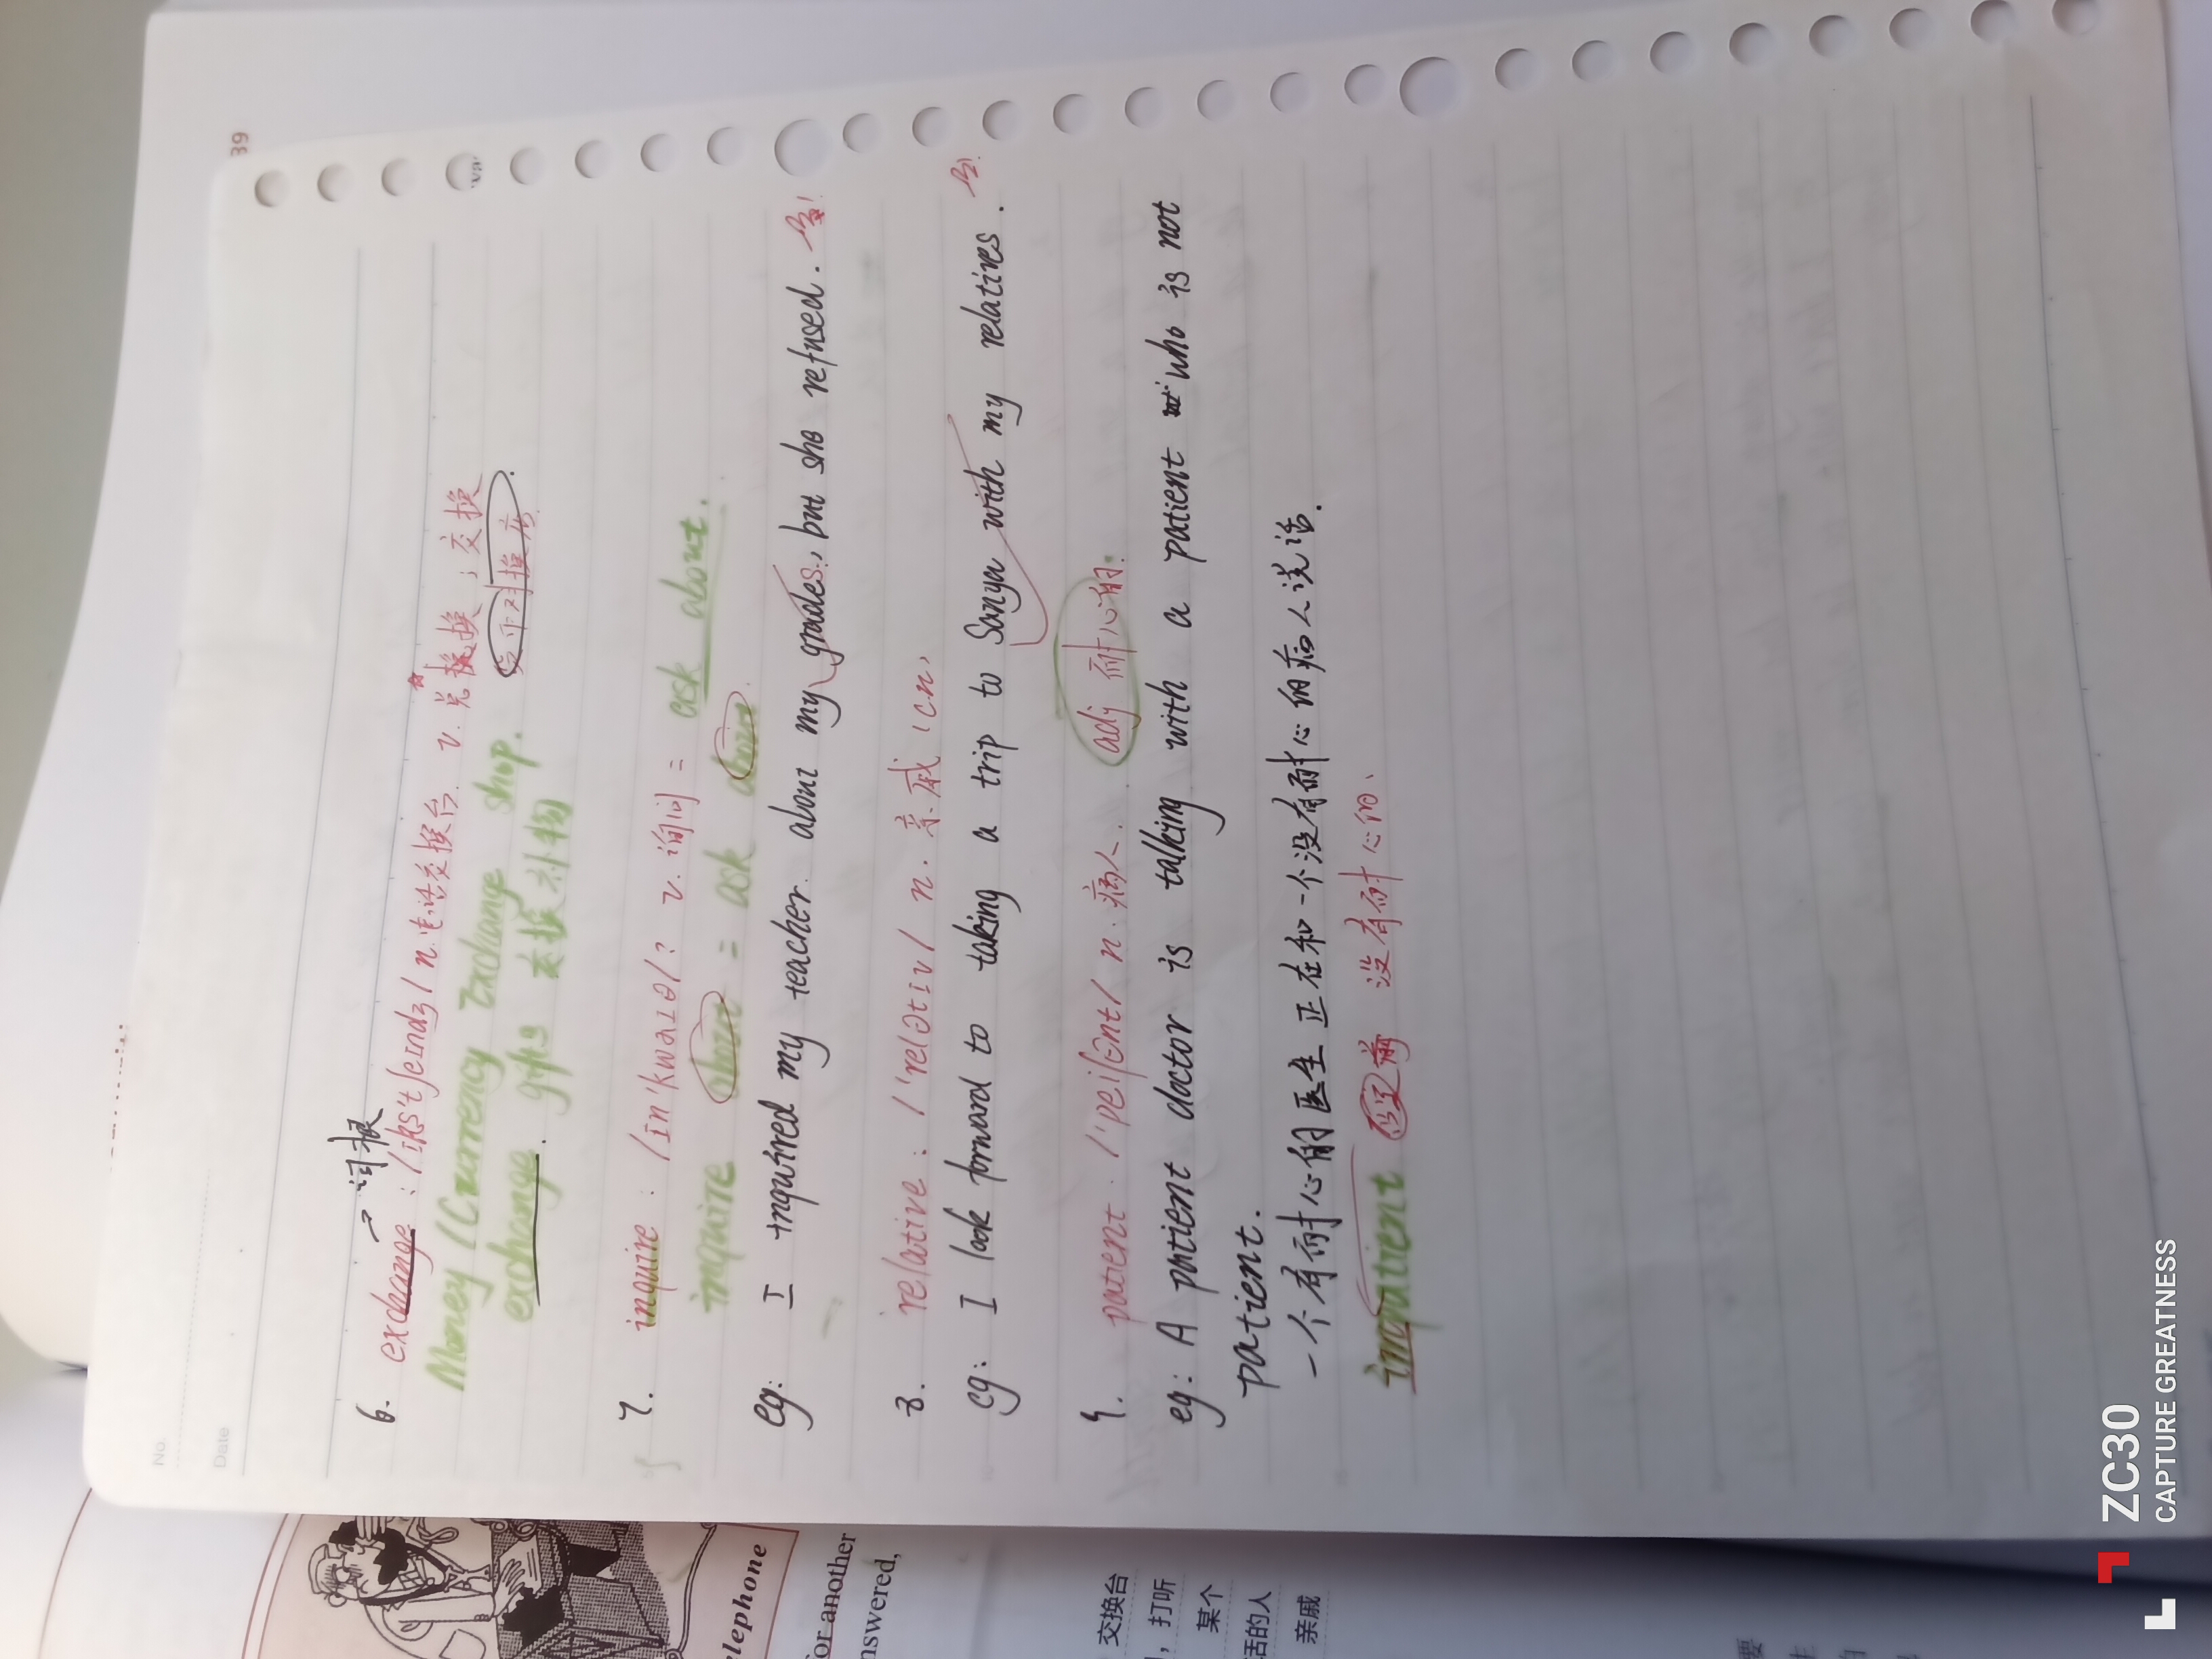 No.
Date
39
→ 词根
6. exchange: /ɪks'tʃeɪndʒ/ n.电话交换台. v.兑换 ; 交换
Money (Currency Exchange shop.
exchange. gifts 交换礼物
7. inquire: /ɪn'kwaɪə/? v.询问 = ask about.
inquire about = ask about
eg: I inquired my teacher about my grades, but she refused.
8. relative: /'relətɪv/ n. 亲戚 (cn)
eg: I look forward to taking a trip to Sanya with my relatives.
9. patient. /'peiʃənt/ n. 病人. adj 耐心的.
eg: A patient doctor is talking with a patient who is not
patient.
一个有耐心的医生正在和一个没有耐心的病人说话.
impatient 没有耐心的.
elephone
or another
nswered,
交换台
, 打听
某个
活的人
亲戚
要
生
ZC30
CAPTURE GREATNESS